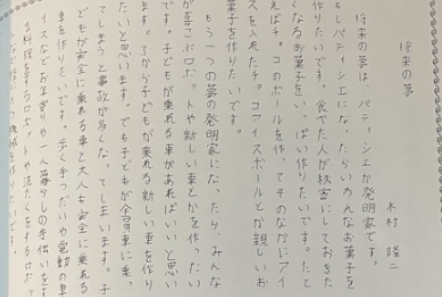 将来の夢
木村 隆二
将来の夢は、パティシエか発明家です。
もしパティシエになったらいろんなお菓子を
作りたいです。食べた人が秘密にしておきた
くなるお菓子をいっぱい作りたいです。たと
えばチョコのボールを作ってそのなかにアイ
スを入れたチョコアイスボールとか新しいお
菓子を作りたいです。
もう一つの夢の発明家になったら、みんな
が喜ぶロボットや新しい車とかを作ったい
です。子どもが乗れる車があればいいと思い
ます。だから子どもが乗れる新しい車を作り
たいと思います。でも子どもが全員車に乗っ
てしまうと事故が多くなってしまいます。子
どもが安全に乗れる車と大人も安全に乗れる
車を作りたいです。歩く手つだいや電動の車
イスなどお年寄りや一人暮らしの手伝いをす
る料理を作るロボットや洗たくをするロボッ